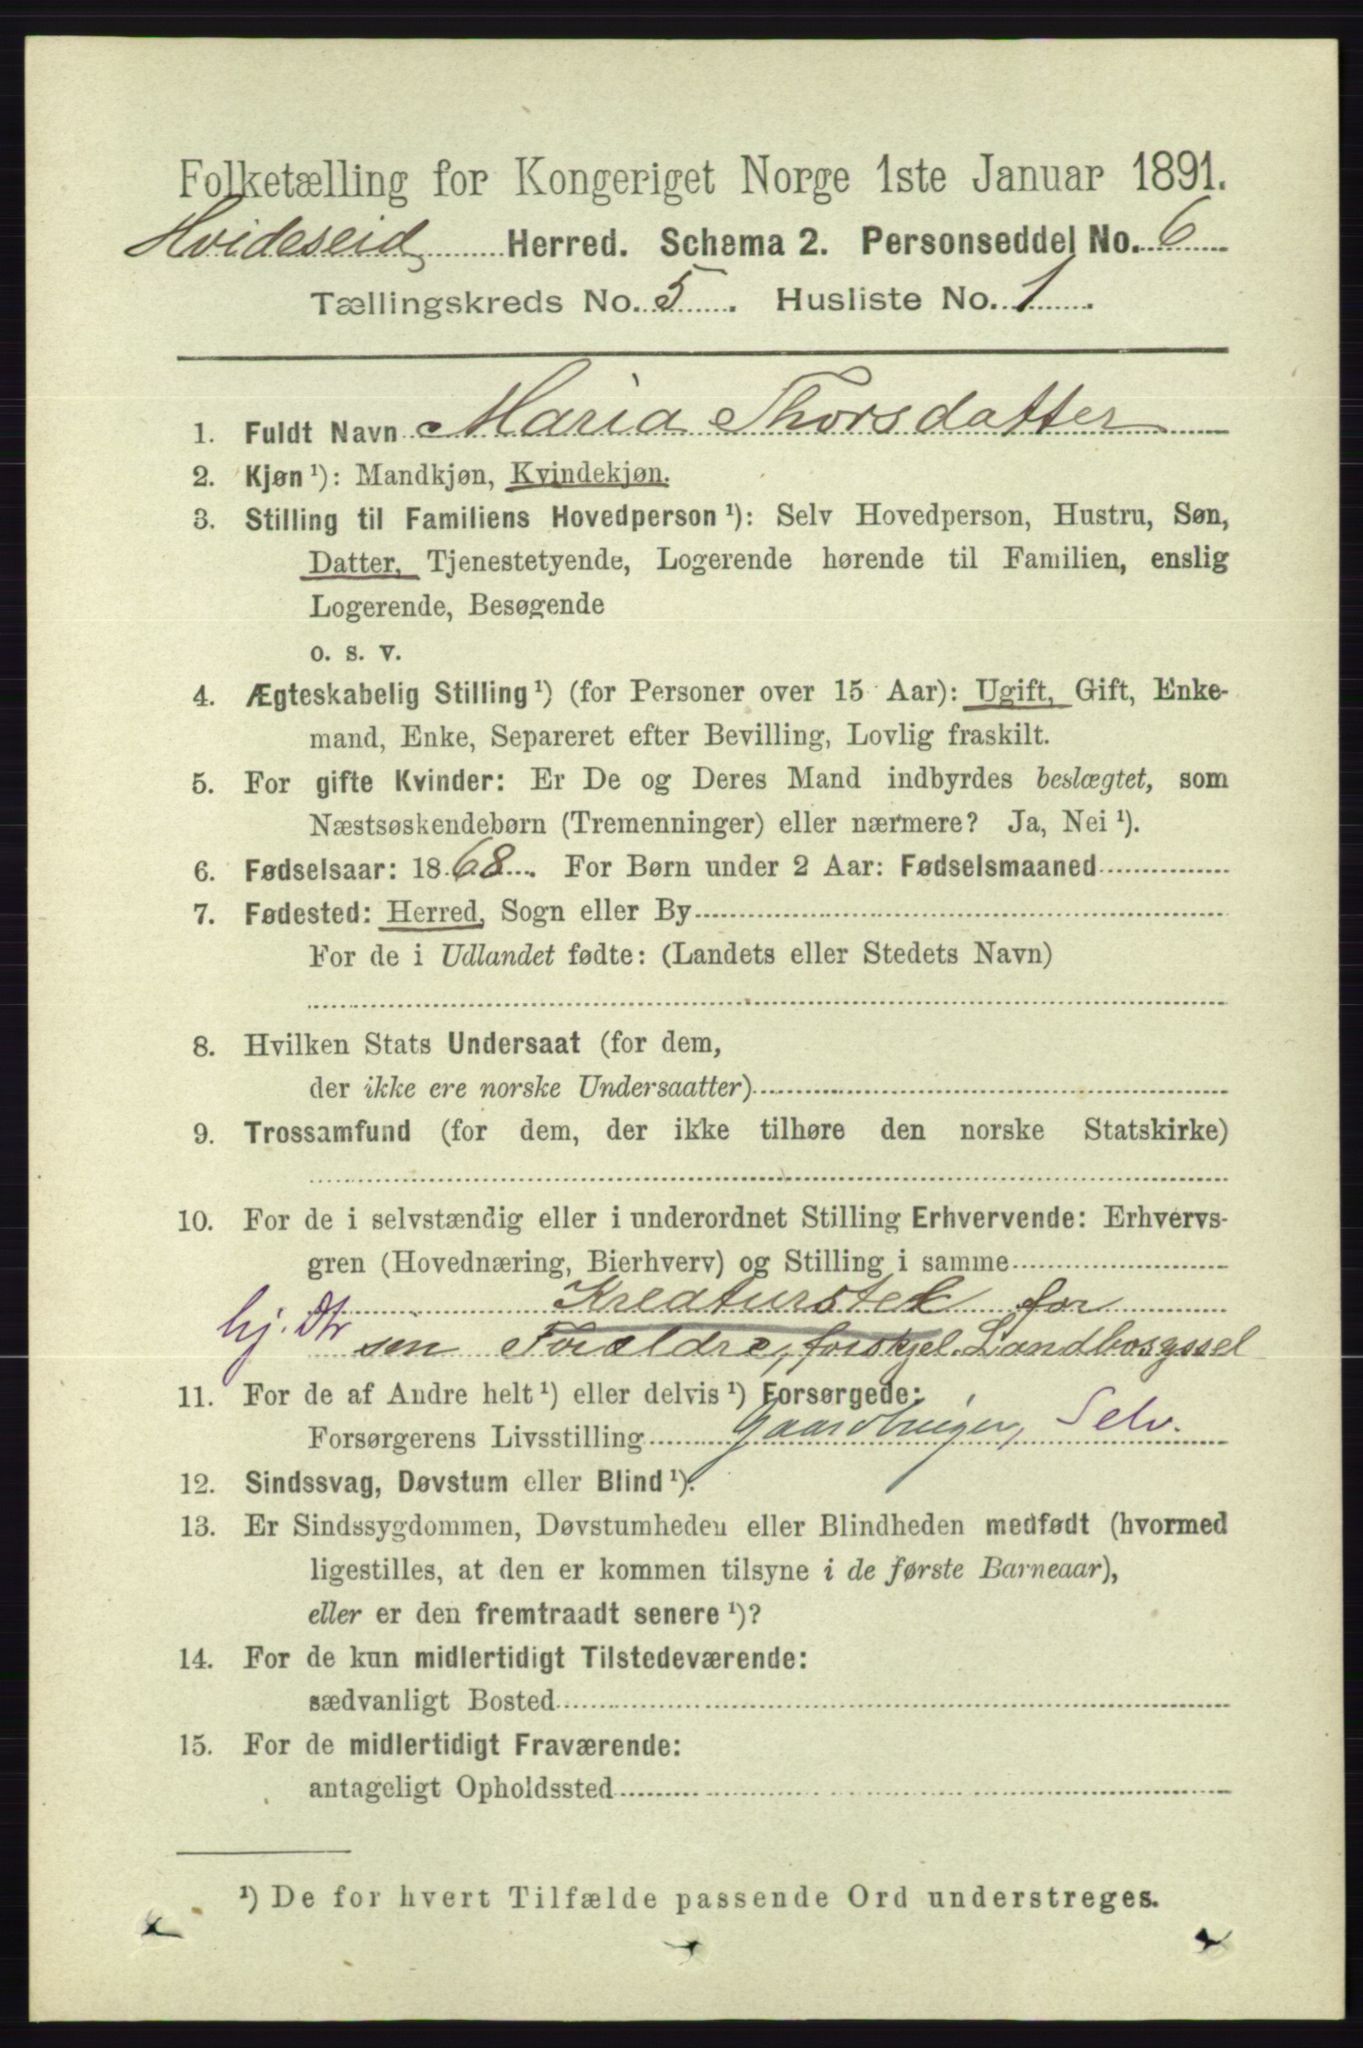 Folketælling for Kongeriget Norge 1ste Januar 1891.
Hvideseid Herred. Schema 2. Personseddel No. 6
Tællingskreds No. 5. Husliste No. 1.
1. Fuldt Navn Maria Thorsdatter
2. Kjøn ¹): Mandkjøn, Kvindekjøn.
3. Stilling til Familiens Hovedperson ¹): Selv Hovedperson, Hustru, Søn,
Datter, Tjenestetyende, Logerende hørende til Familien, enslig
Logerende, Besøgende
o. s. v.
4. Ægteskabelig Stilling ¹) (for Personer over 15 Aar): Ugift, Gift, Enke-
mand, Enke, Separeret efter Bevilling, Lovlig fraskilt.
5. For gifte Kvinder: Er De og Deres Mand indbyrdes beslægtet, som
Næstsøskendebørn (Tremenninger) eller nærmere? Ja, Nei ¹).
6. Fødselsaar: 1868. For Børn under 2 Aar: Fødselsmaaned
7. Fødested: Herred, Sogn eller By
For de i Udlandet fødte: (Landets eller Stedets Navn)
8. Hvilken Stats Undersaat (for dem,
der ikke ere norske Undersaatter)
9. Trossamfund (for dem, der ikke tilhøre den norske Statskirke)
10. For de i selvstændig eller i underordnet Stilling Erhvervende: Erhvervs-
gren (Hovednæring, Bierhverv) og Stilling i samme
Kreaturstel for
hj. Dtr sin Forældre, forskjel. Landbosyssel
11. For de af Andre helt ¹) eller delvis ¹) Forsørgede:
Forsørgerens Livsstilling Gaardbruger, Selv.
12. Sindssvag, Døvstum eller Blind ¹).
13. Er Sindssygdommen, Døvstumheden eller Blindheden medfødt (hvormed
ligestilles, at den er kommen tilsyne i de første Barneaar),
eller er den fremtraadt senere ¹)?
14. For de kun midlertidigt Tilstedeværende:
sædvanligt Bosted
15. For de midlertidigt Fraværende:
antageligt Opholdssted
¹) De for hvert Tilfælde passende Ord understreges.